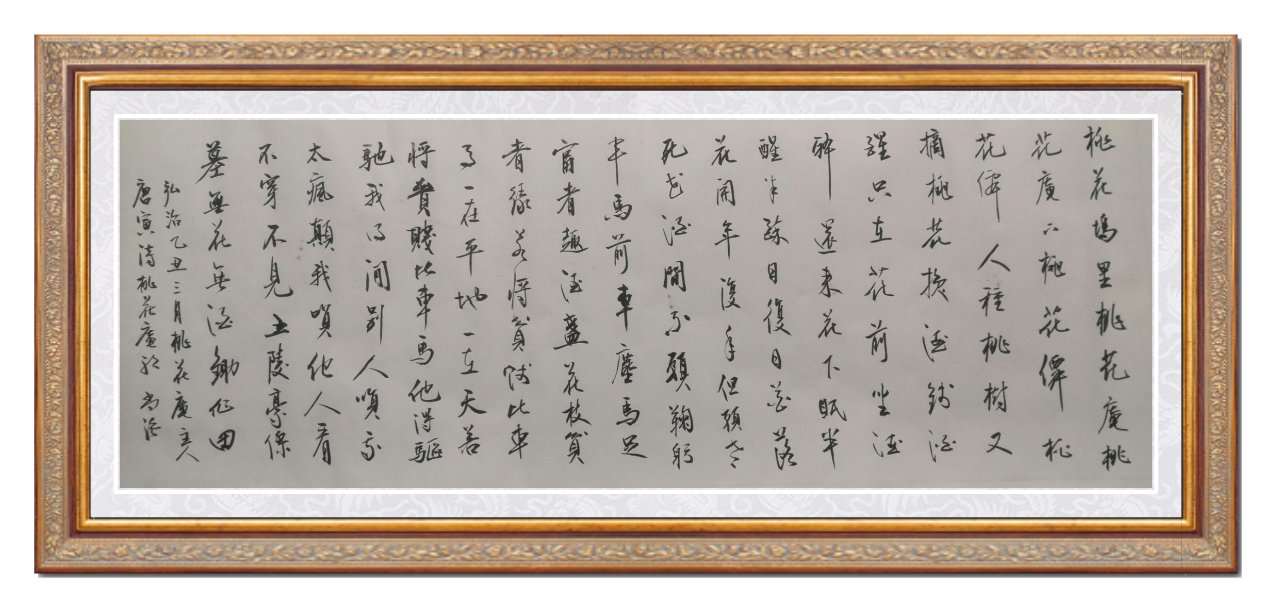 桃花塢里桃花庵桃
花庵下桃花僊桃
花僊人種桃樹又
摘桃花換酒錢酒
醒只在花前坐酒
醉還来花下眠半
醒半醉日復日花落
花開年復年但願老
死花酒間不願鞠躬
車馬前車塵馬足
富者趣酒盞花枝貧
者緣若将貧賤比車
馬一在平地一在天若
将貴賤比車馬他得驅
馳我得閒别人嘆我
太瘋顛我嘆他人看
不穿不見五陵豪傑
墓無花無酒鋤作田
弘治乙丑三月桃花庵主人
唐寅詩桃花庵歌